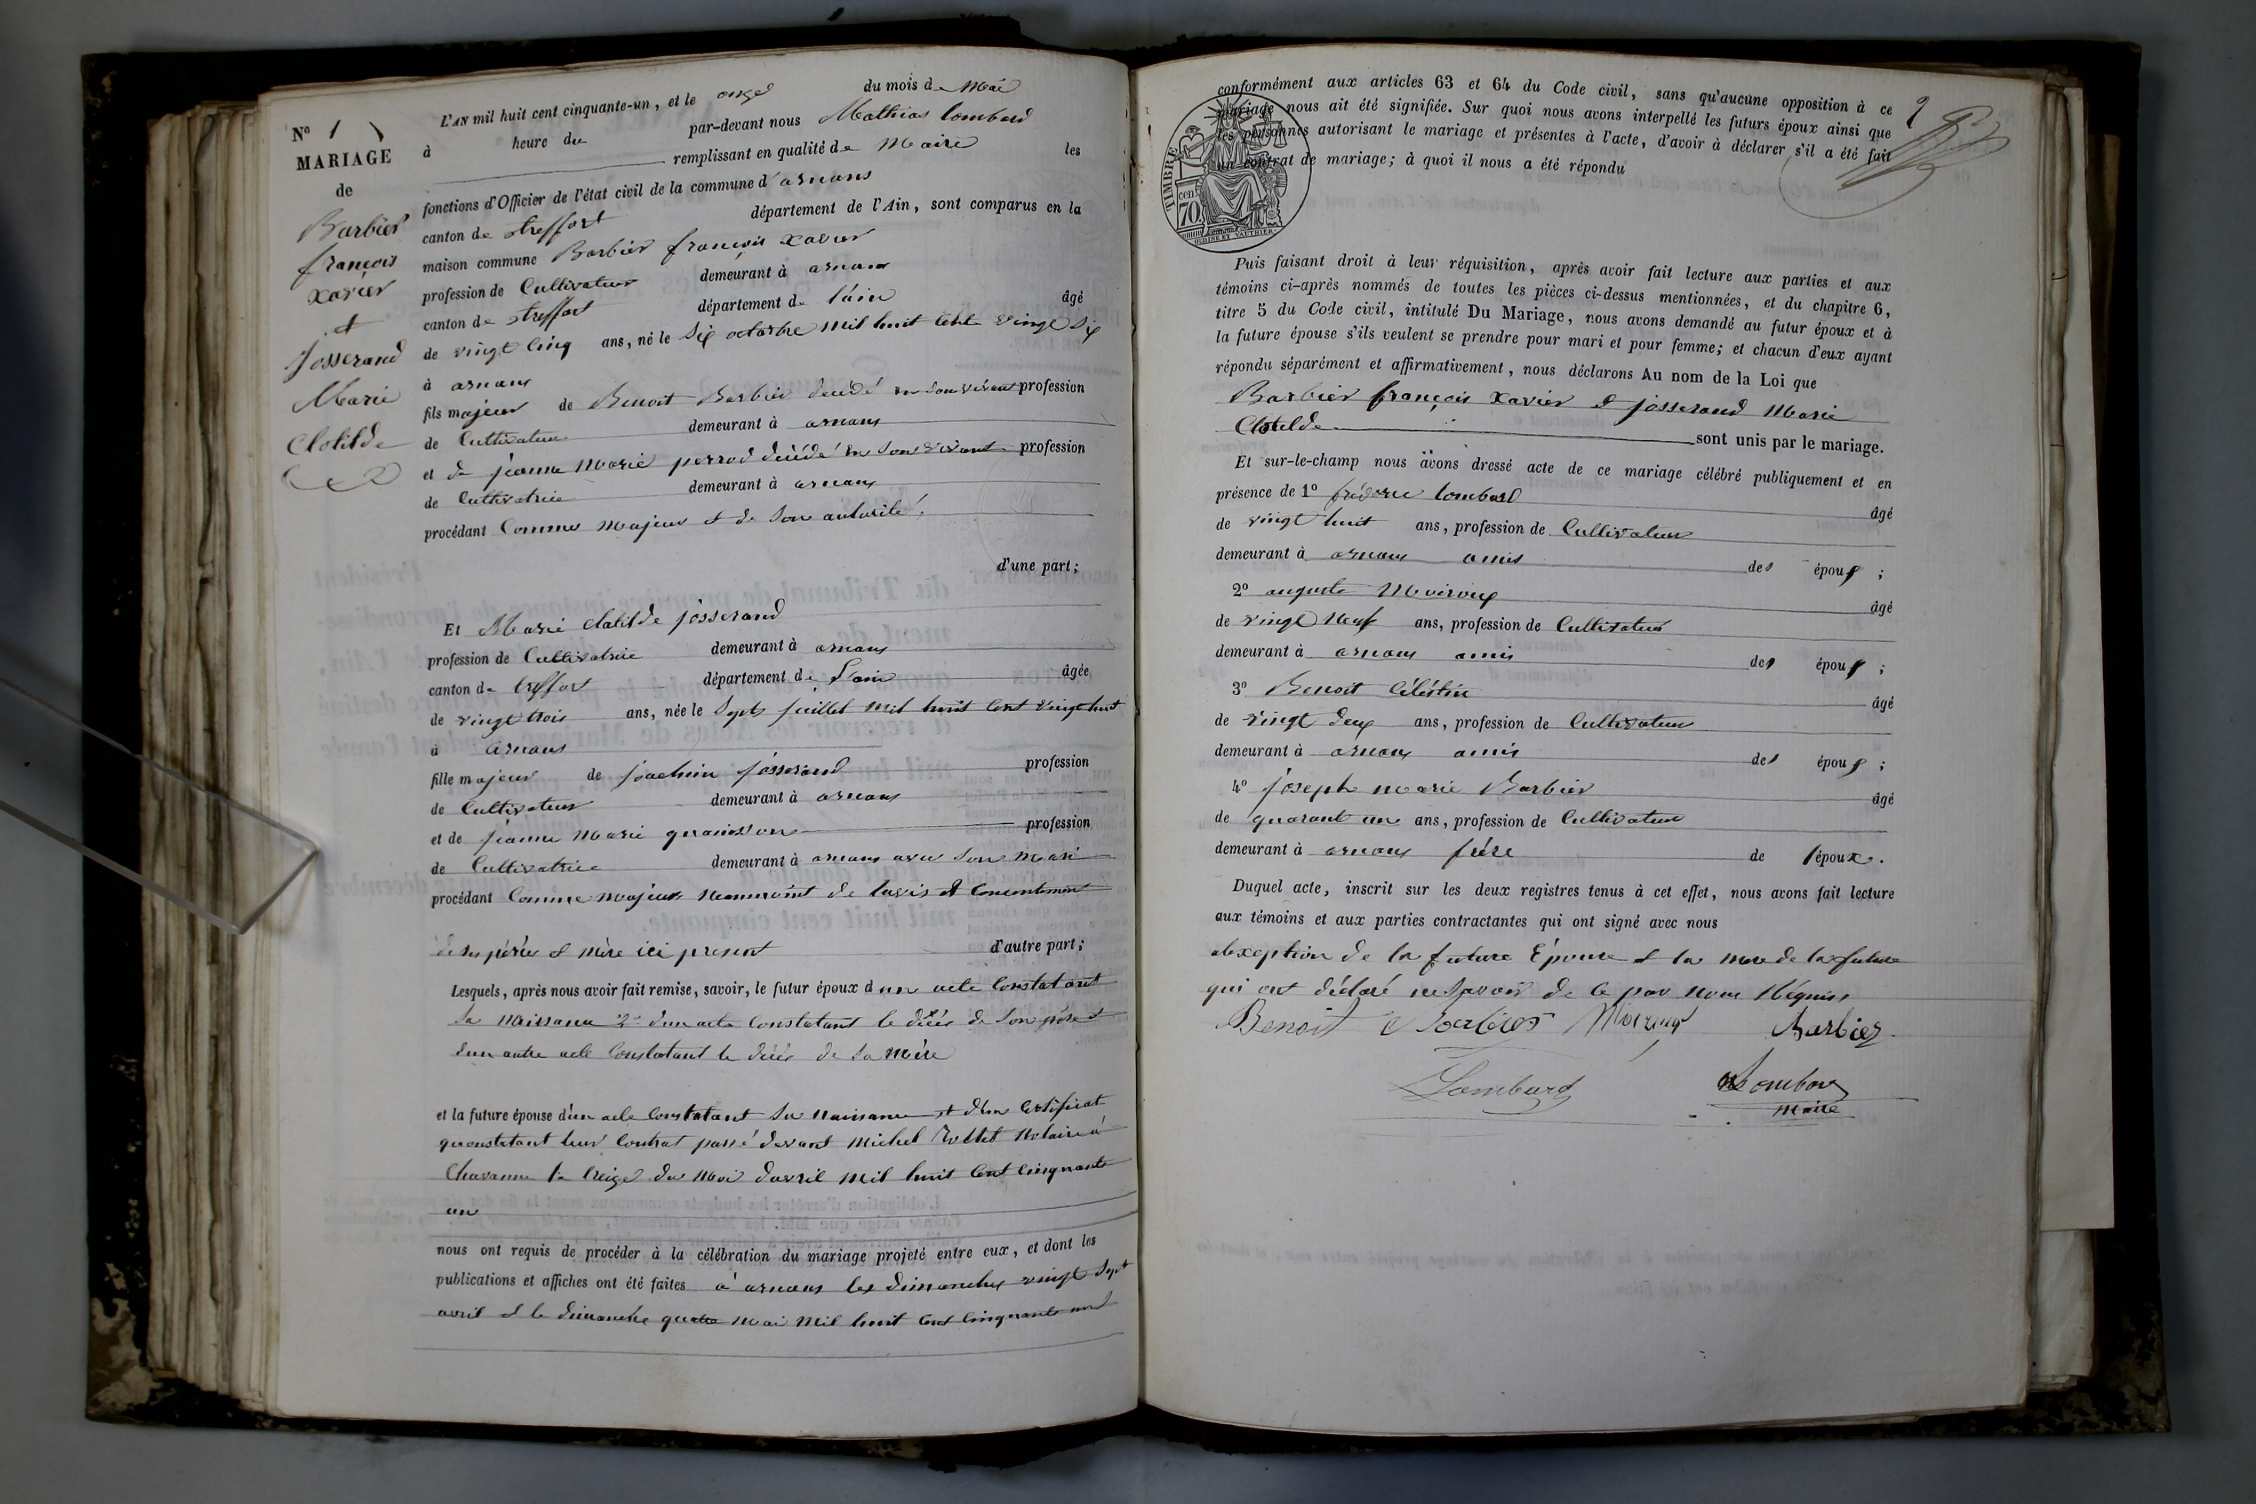 N° 1
MARIAGE
de
Barbier
françois
xavier
et
Josserand
Marie
Clotilde
L'AN mil huit cent cinquante-un, et le onze du mois de Mai
à heure du par-devant nous Mathias Lombard
remplissant en qualité de Maire les
fonctions d'Officier de l'état civil de la commune d'arnans
canton de treffort département de l'Ain, sont comparus en la
maison commune Barbier françois xavier
profession de Cultivateur demeurant à arnans
canton de treffort département de l'ain âgé
de vingt cinq ans, né le Six octobre mil huit cent vingt Six
à arnans
fils majeur de Benoit Barbier décédé en Son vivant profession
de Cultivateur demeurant à arnans
et de jeanne Marie perrod décédé en Son vivant profession
de Cultivatrice demeurant à arnans
procédant Comme Majeur et de Son autorité
d'une part;
Et Marie Clotilde josserand
profession de Cultivatrice demeurant à arnans
canton de treffort département de l'ain âgée
de vingt trois ans, née le Sept juillet mil huit Cent vingt huit
à arnans
fille majeur de joachim josserand profession
de Cultivateur demeurant à arnans
et de jeanne Marie profession
de Cultivatrice demeurant à arnans avec Son Mari
procédant Comme majeur de lavis et Consentement
de Ses péres et mère ici present d'autre part;
Lesquels, après nous avoir fait remise, savoir, le futur époux d'un acte Constatant
Sa Naissance 2° d'un acte Constatant le décés de Son père et
d'un autre acte Constatant le décés de Sa Mère
et la future épouse d'un acte Constatant Sa Naissance et d'un Certificat
Constatant leur Contrat passé devant Michel Notaire à
Chavanne le treize du Moi d'avril Mil huit Cent Cinquante
un
nous ont requis de procéder à la célébration du mariage projeté entre eux, et dont les
publications et affiches ont été faites à arnans les dimanches vingt Sept
avril et le dimanche quatre Mai Mil huit Cent Cinquante un
conformément aux articles 63 et 64 du Code civil, sans qu'aucune opposition à ce
mariage nous ait été signifiée. Sur quoi nous avons interpellé les futurs époux ainsi que
les personnes autorisant le mariage et présentes à l'acte, d'avoir à déclarer s'il a été fait
un contrat de mariage; à quoi il nous a été répondu
2
TIMBRE
70
cen
Puis faisant droit à leur réquisition, après avoir fait lecture aux parties et aux
témoins ci-après nommés de toutes les pièces ci-dessus mentionnées, et du chapitre 6,
titre 5 du Code civil, intitulé Du Mariage, nous avons demandé au futur époux et à
la future épouse s'ils veulent se prendre pour mari et pour femme; et chacun d'eux ayant
répondu séparément et affirmativement, nous déclarons Au nom de la Loi que
Barbier françois xavier et josserand Marie
Clotilde sont unis par le mariage.
Et sur-le-champ nous avons dressé acte de ce mariage célébré publiquement et en
présence de 1° fréderic Lombard âgé
de vingt huit ans, profession de Cultivateur
demeurant à arnans amis des époux;
2° auguste Moiroux âgé
de vingt Neuf ans, profession de Cultivateur
demeurant à arnans amis des époux;
3° Benoit Céléstin âgé
de vingt deux ans, profession de Cultivateur
demeurant à arnans amis des époux;
4° joseph marie Barbier âgé
de quarant un ans, profession de Cultivateur
demeurant à arnans frére de l'époux.
Duquel acte, inscrit sur les deux registres tenus à cet effet, nous avons fait lecture
aux témoins et aux parties contractantes qui ont signé avec nous
alexeption de la future Épouse et la mere de la future
qui ont déclaré ne Savoir de ce par Nous Réquis
Benoit Barbier Moiroux Barbier
Lombard Lombard
Maire